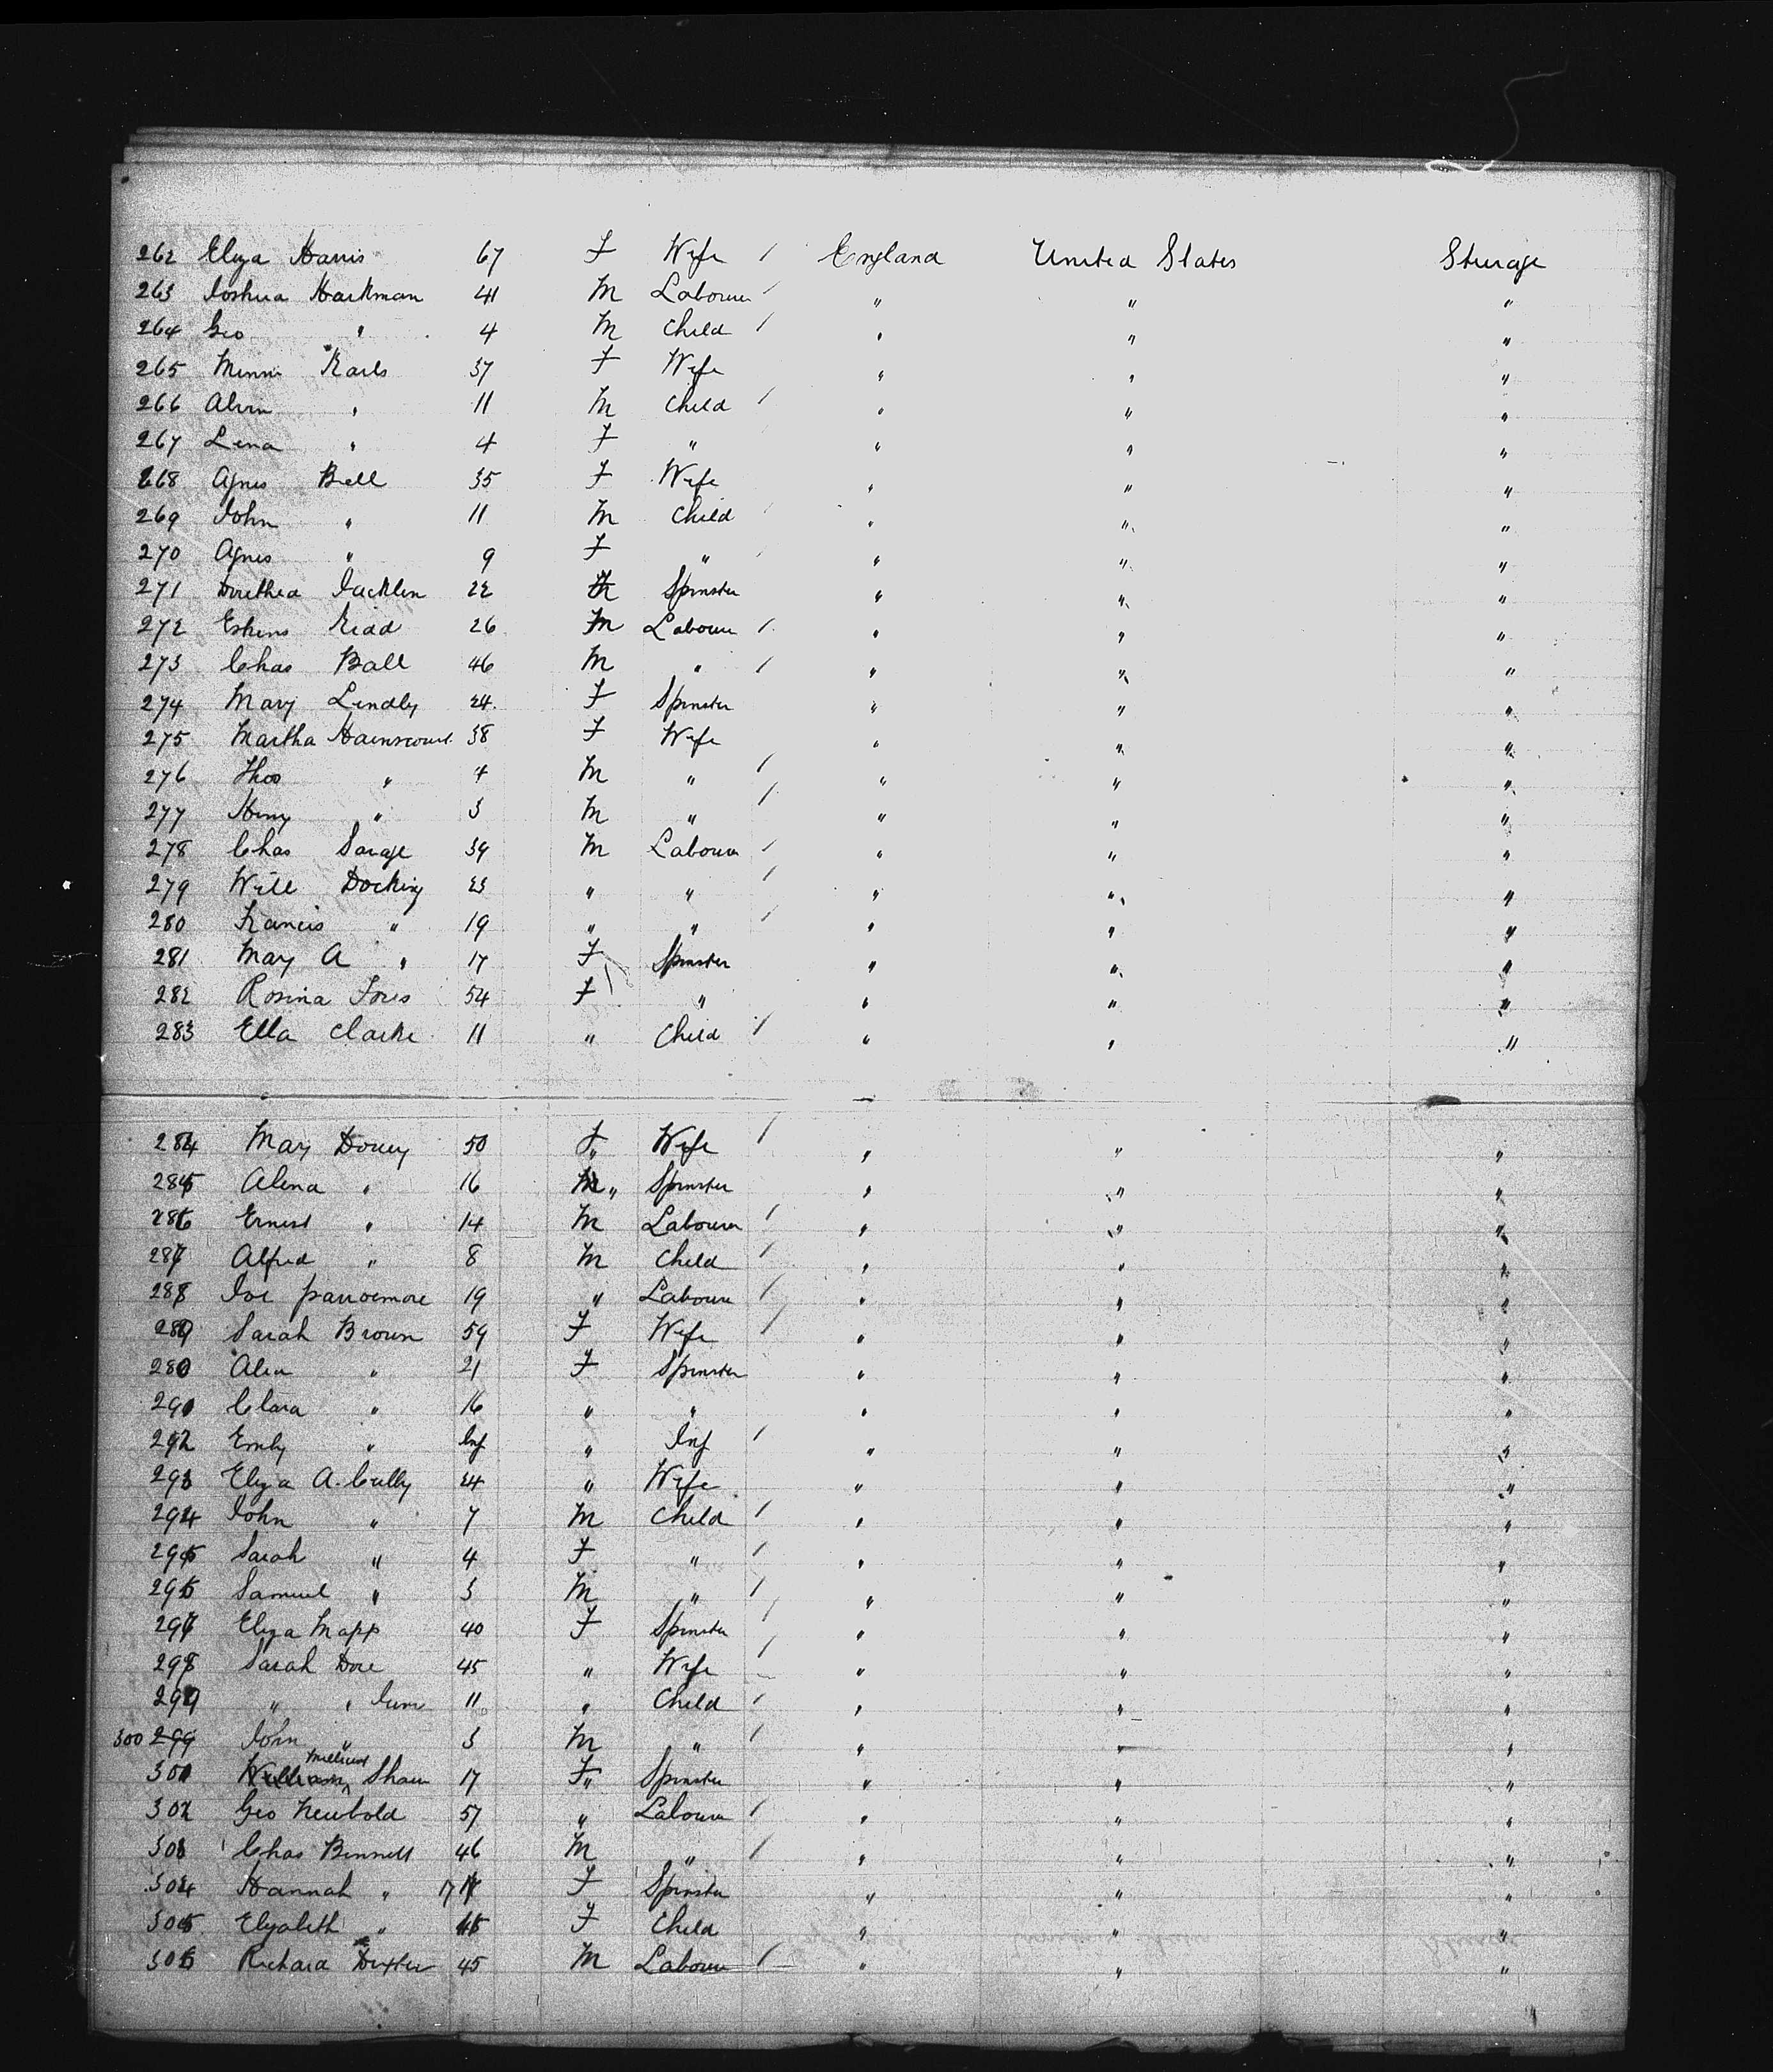 262 Eliza Harris 67 F Wife / England United States Steerage
263 Joshua Harkman 41 M Labourer / " " "
264 Geo " 4 M Child / " " "
265 Minni Karls 37 F Wife " " "
266 Alvin " 11 M Child / " " "
267 Lena " 4 F " " " "
268 Agnes Bell 35 F Wife " " "
269 John " 11 M Child " " "
270 Agnes " 9 F " " " "
271 Dorethea Jacklin 22 F Spinster " " "
272 Eskens Kidd 26 M Labourer / " " "
273 Chas Ball 46 M " / " " "
274 Mary Lindley 24 F Spinster " " "
275 Martha 38 F Wife " " "
276 Thos " 4 M " / " " "
277 Henry " 3 M " / " " "
278 Chas Savage 39 M Labourer / " " "
279 Will Docking 23 " " / " " "
280 Francis " 19 " " / " " "
281 Mary A " 17 F Spinster " " "
282 Rosina 54 F " " " "
283 Ella Clarke 11 " Child / " " "
284 Mary Doucy 50 F " Wife / " " "
285 Alena " 16 " Spinster " " "
286 Ernest " 14 M Labourer / " " "
287 Alfred " 8 M Child / " " "
288 Joe Parroemore 19 " Labourer / " " "
289 Sarah Brown 59 F Wife / " " "
280 " 21 F Spinster " " "
291 Clara " 16 " " " " "
292 Emily " Inf " Inf / " " "
293 Eliza A. Cully 24 " Wife " " "
294 John " 7 M Child / " " "
295 Sarah " 4 F " / " " "
296 Samuel " 3 M " / " " "
297 Eliza Mapp 40 F Spinster / " " "
298 Sarah Dore 45 " Wife / " " "
299 " " Junr 11 " Child / " " "
300 299 John " 3 M " / " " "
301 William Millicent Shaw 17 F " Spinster " " "
302 Geo Newbold 57 " Labourer / " " "
303 Chas Bennett 46 M " / " " "
304 Hannah " 17 F Spinster " " "
305 Elizabeth " F Child " " "
306 Richard Dexter 45 M Labourer / " " "